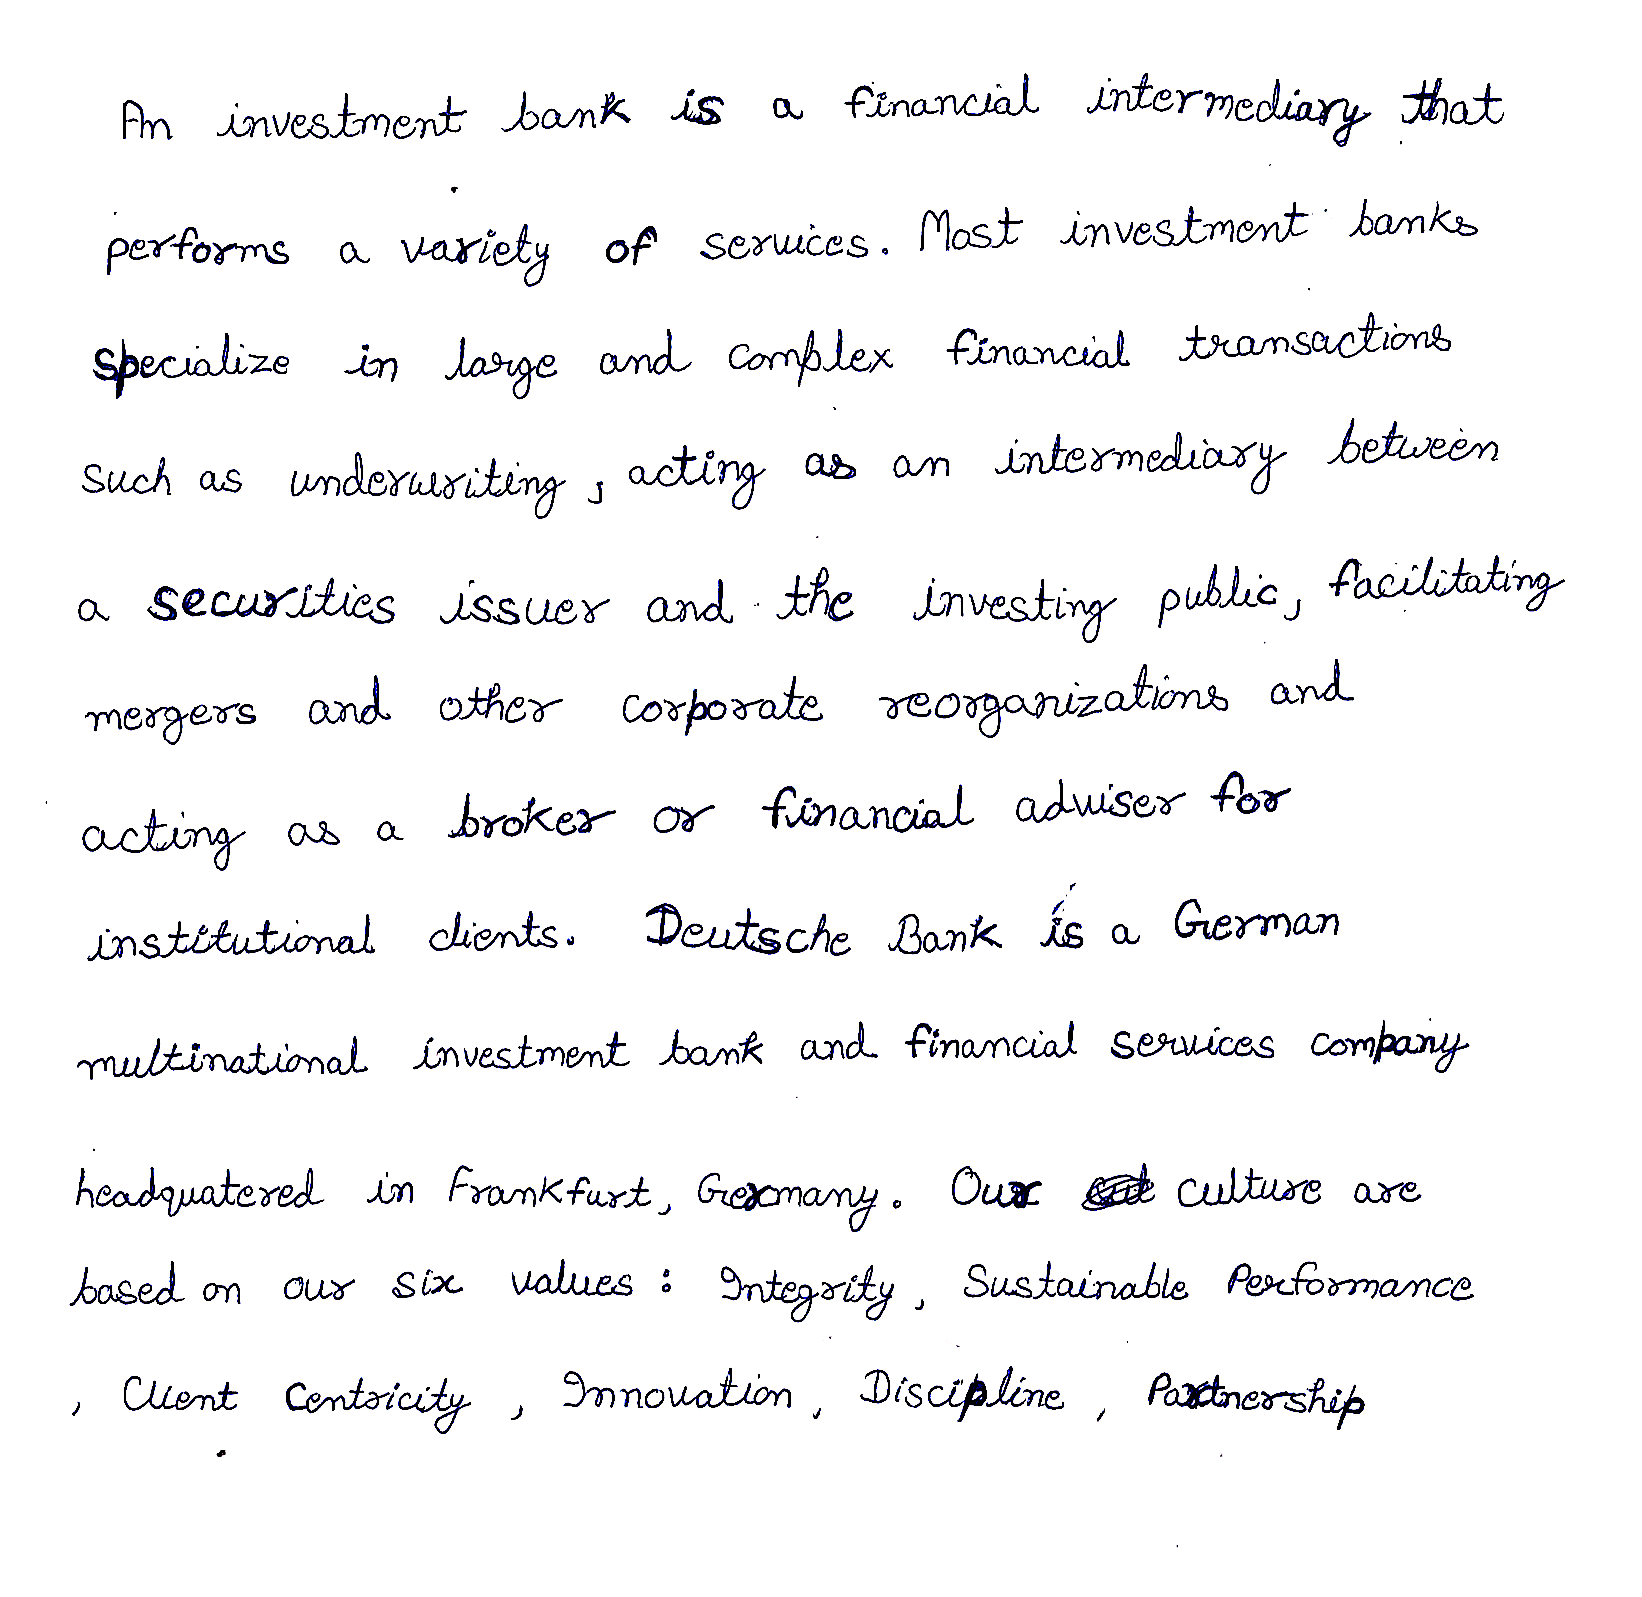 An investment bank is a financial intermediary that
performs a variety of services. Most investment banks
specialize in large and complex financial transactions
such as underwriting, acting as an intermediary between
a securities issuer and the investing public, facilitating
mergers and other corporate reorganizations and
acting as a broker or financial adviser for
institutional clients. Deutsche Bank is a German
multinational investment bank and financial services company
headquatered in Frankfurt, Germany. Our culture are
based on our six values : Integrity, Sustainable Performance
, Client Centricity, Innovation, Discipline, Partnership